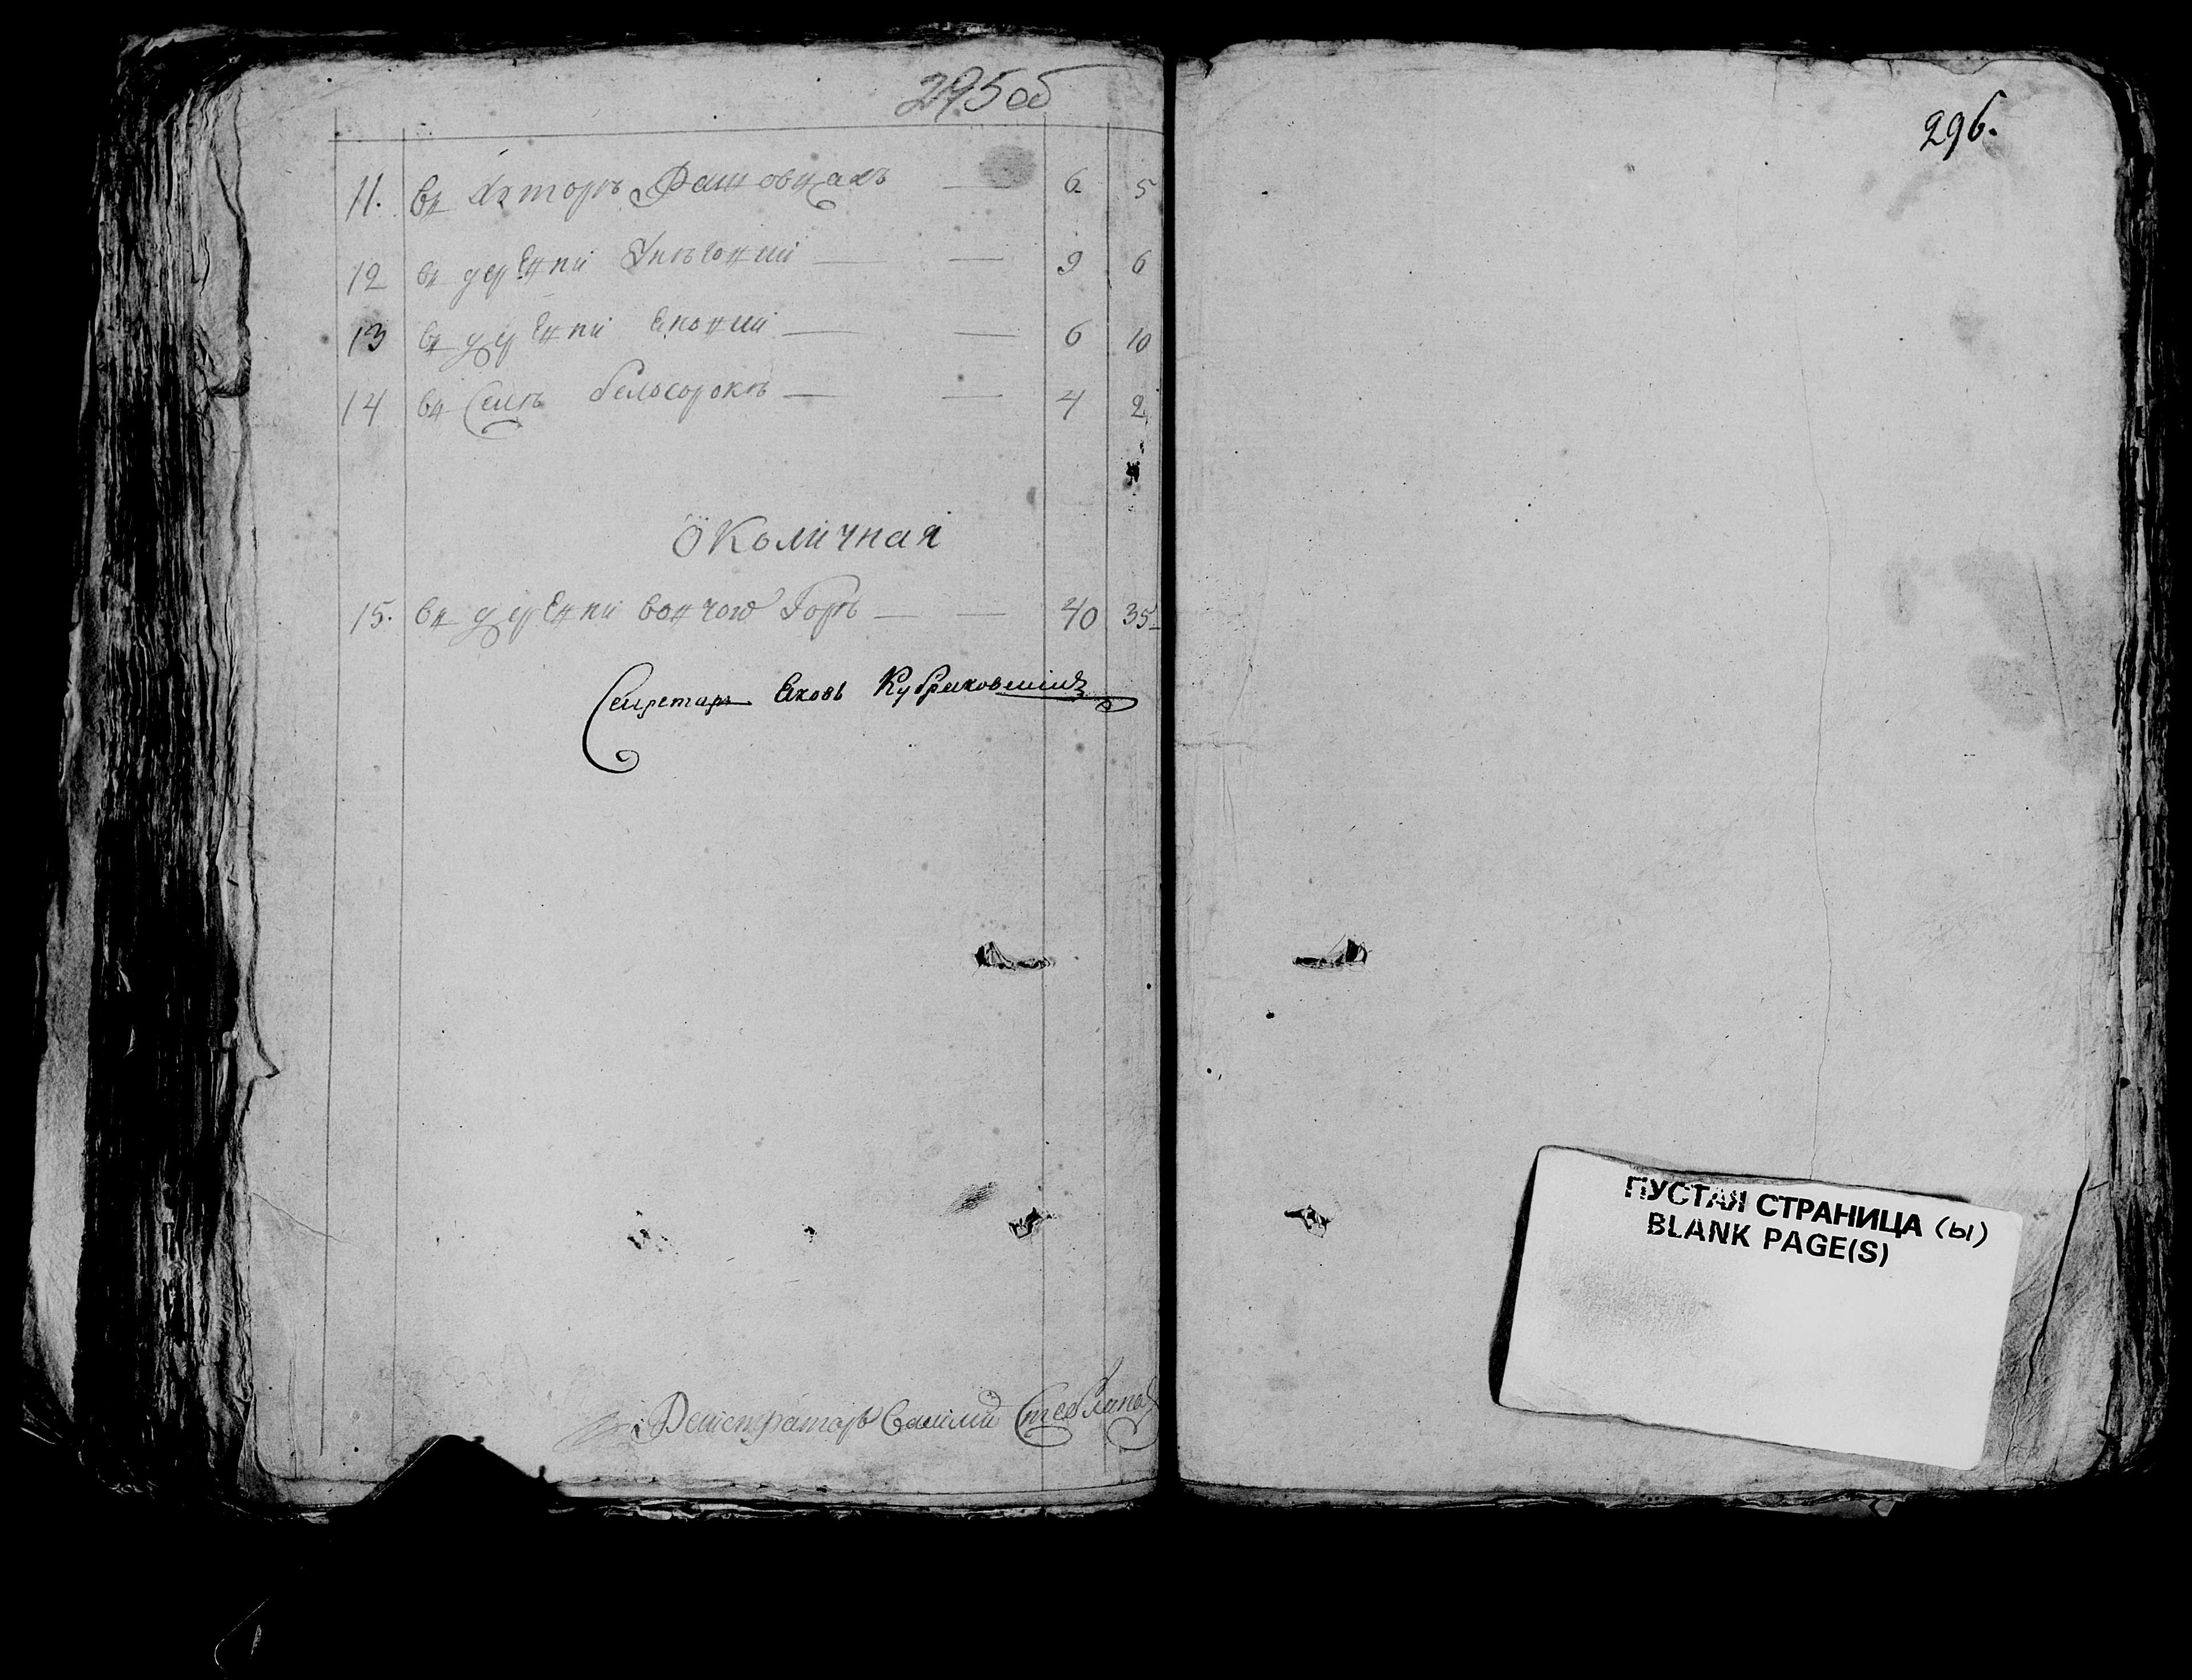 295об
11. въ хуторѣ Рашовцахъ — 6 5
12 въ деревни — — 9 6
13 въ деревни — — 6 10
14 въ Селѣ белосорокѣ — — 4 2
околичная
15. въ деревни вончого Горѣ — — 40 35
Секретарь Яковъ
Регистраторъ
296.
ПУСТАЯ СТРАНИЦА (Ы)
BLANK PAGE(S)